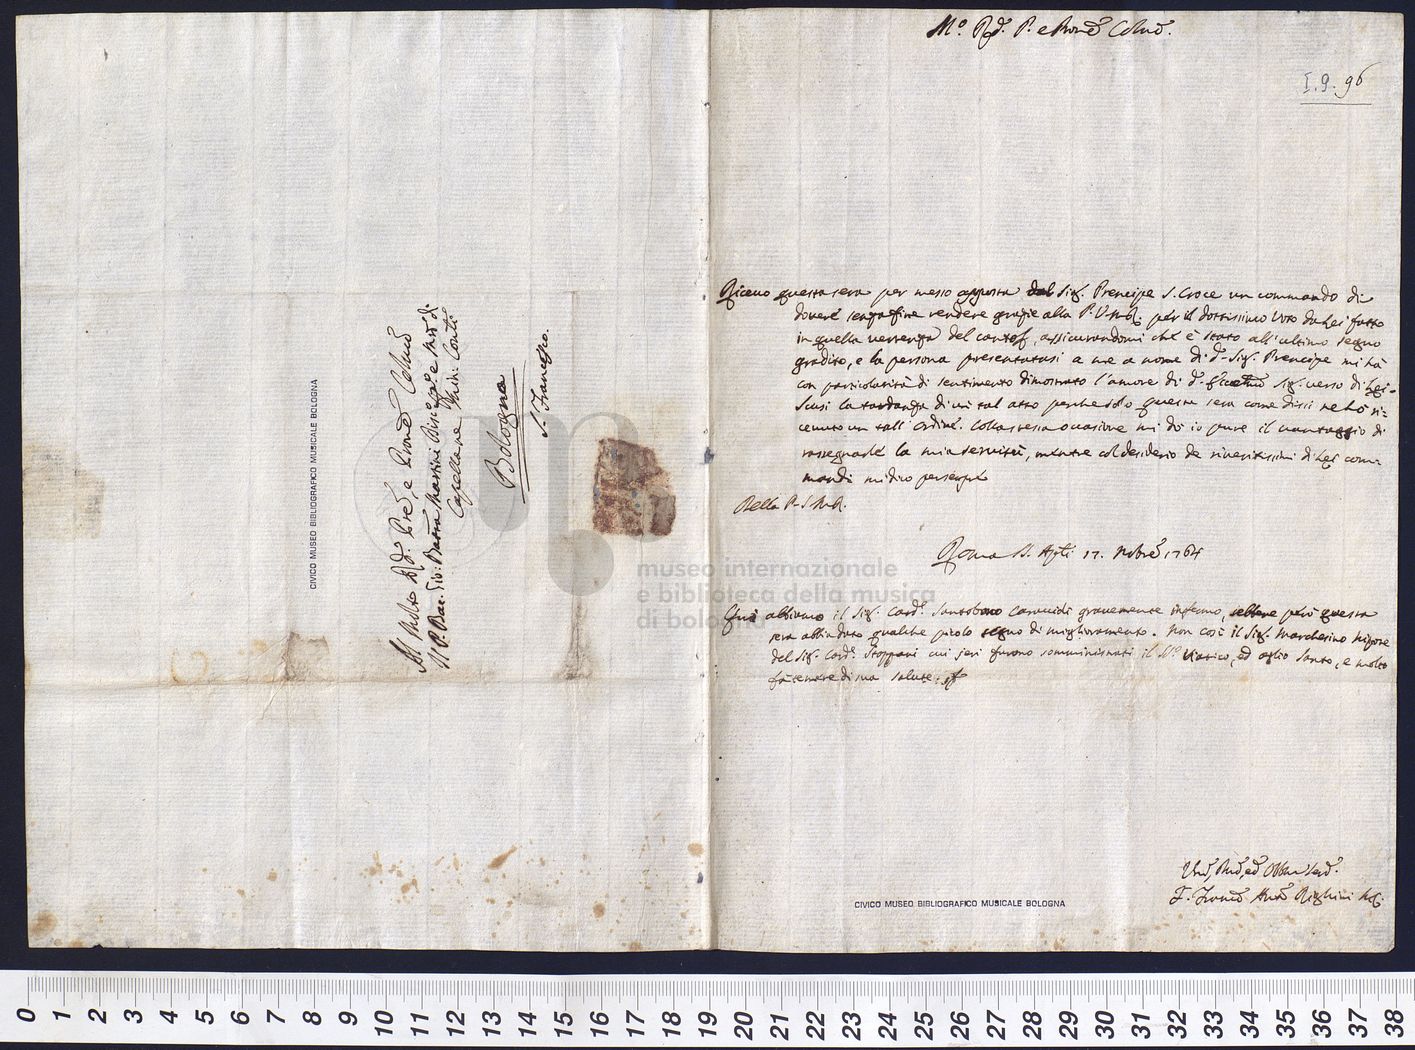 Al Molto Rdo. Pre, e Prone Colmo
Il P. Bac. Gio: Batta Martini
Capella ne Min: Conti
Bologna
S. Franco.
CIVICO MUSEO BIBLIOGRAFICO MUSICALE BOLOGNA
Mo. Rdo. P. e Prone Colmo.
I.9.96
Ricevo questa sera per messo apposta dal Sig. Prencipe S. Croce un commando di
dovere senza fine rendere grazie alla P. V. M. R. per il dottissimo Voto da Lei fatto
in quella vertenza del cantes, assicurandomi che è stato all'ultimo segno
gradito, e la persona presentatasi a me a nome di d. Sig. Prencipe mi hà
con particolarità di sentimento dimostrato l'amore di d. Sig. verso di Lei.
Scusi la tardanza di un tal atto perche solo questa sera come dissi ne hò ri-
cevuto un tall'ordine. Colla stessa occasione mi dò io pure il vantaggio di
rassegnarle la mia servitù, mentre col desiderio de riveritissimi di Lei com-
mandi mi dico per sempre
Della P. V. M. R.
Roma SS. Apli 17. Nobre 1764
Quì abbiamo il Sig. Card. gravemente infermo, sebbene però questa
sera abbia dato qualche picolo segno di miglioramento. Non così il Sig. Marchesino Nipote
del Sig. Card. Stoppani cui jeri furono somministrati il SSo. Viatico, ed oglio Santo, e molto
fà temere di sua salute.
Umo, Divmo, ed Obbmo Servo.
F. Franco Anto Righini
CIVICO MUSEO BIBLIOGRAFICO MUSICALE BOLOGNA
museo internazionale
e biblioteca della musica
di bologna
0 1 2 3 4 5 6 7 8 9 10 11 12 13 14 15 16 17 18 19 20 21 22 23 24 25 26 27 28 29 30 31 32 33 34 35 36 37 38